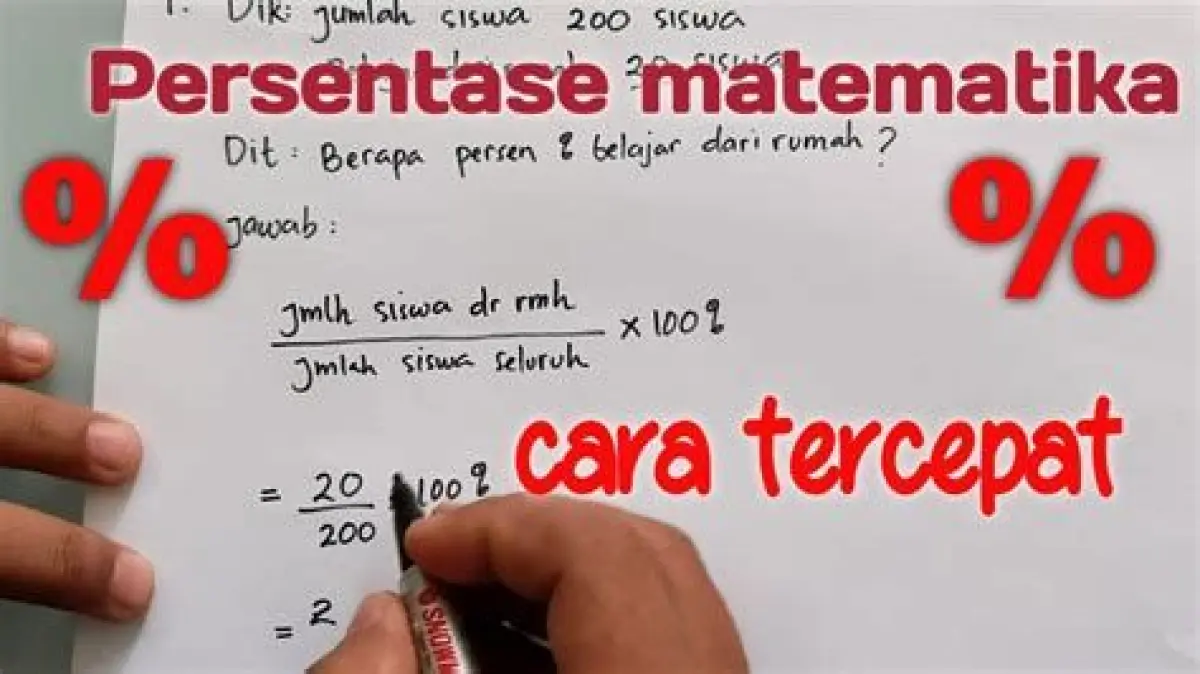 1. Dik: jumlah siswa 200 siswa
20 siswa
Persentase matematika
Dit : Berapa persen % belajar dari rumah ?
% %
jawab :
jmlh siswa dr rmh
x 100 %
jmlah siswa seluruh
cara tercepat
= 20 100 %
200
= 2
SNOWMAN